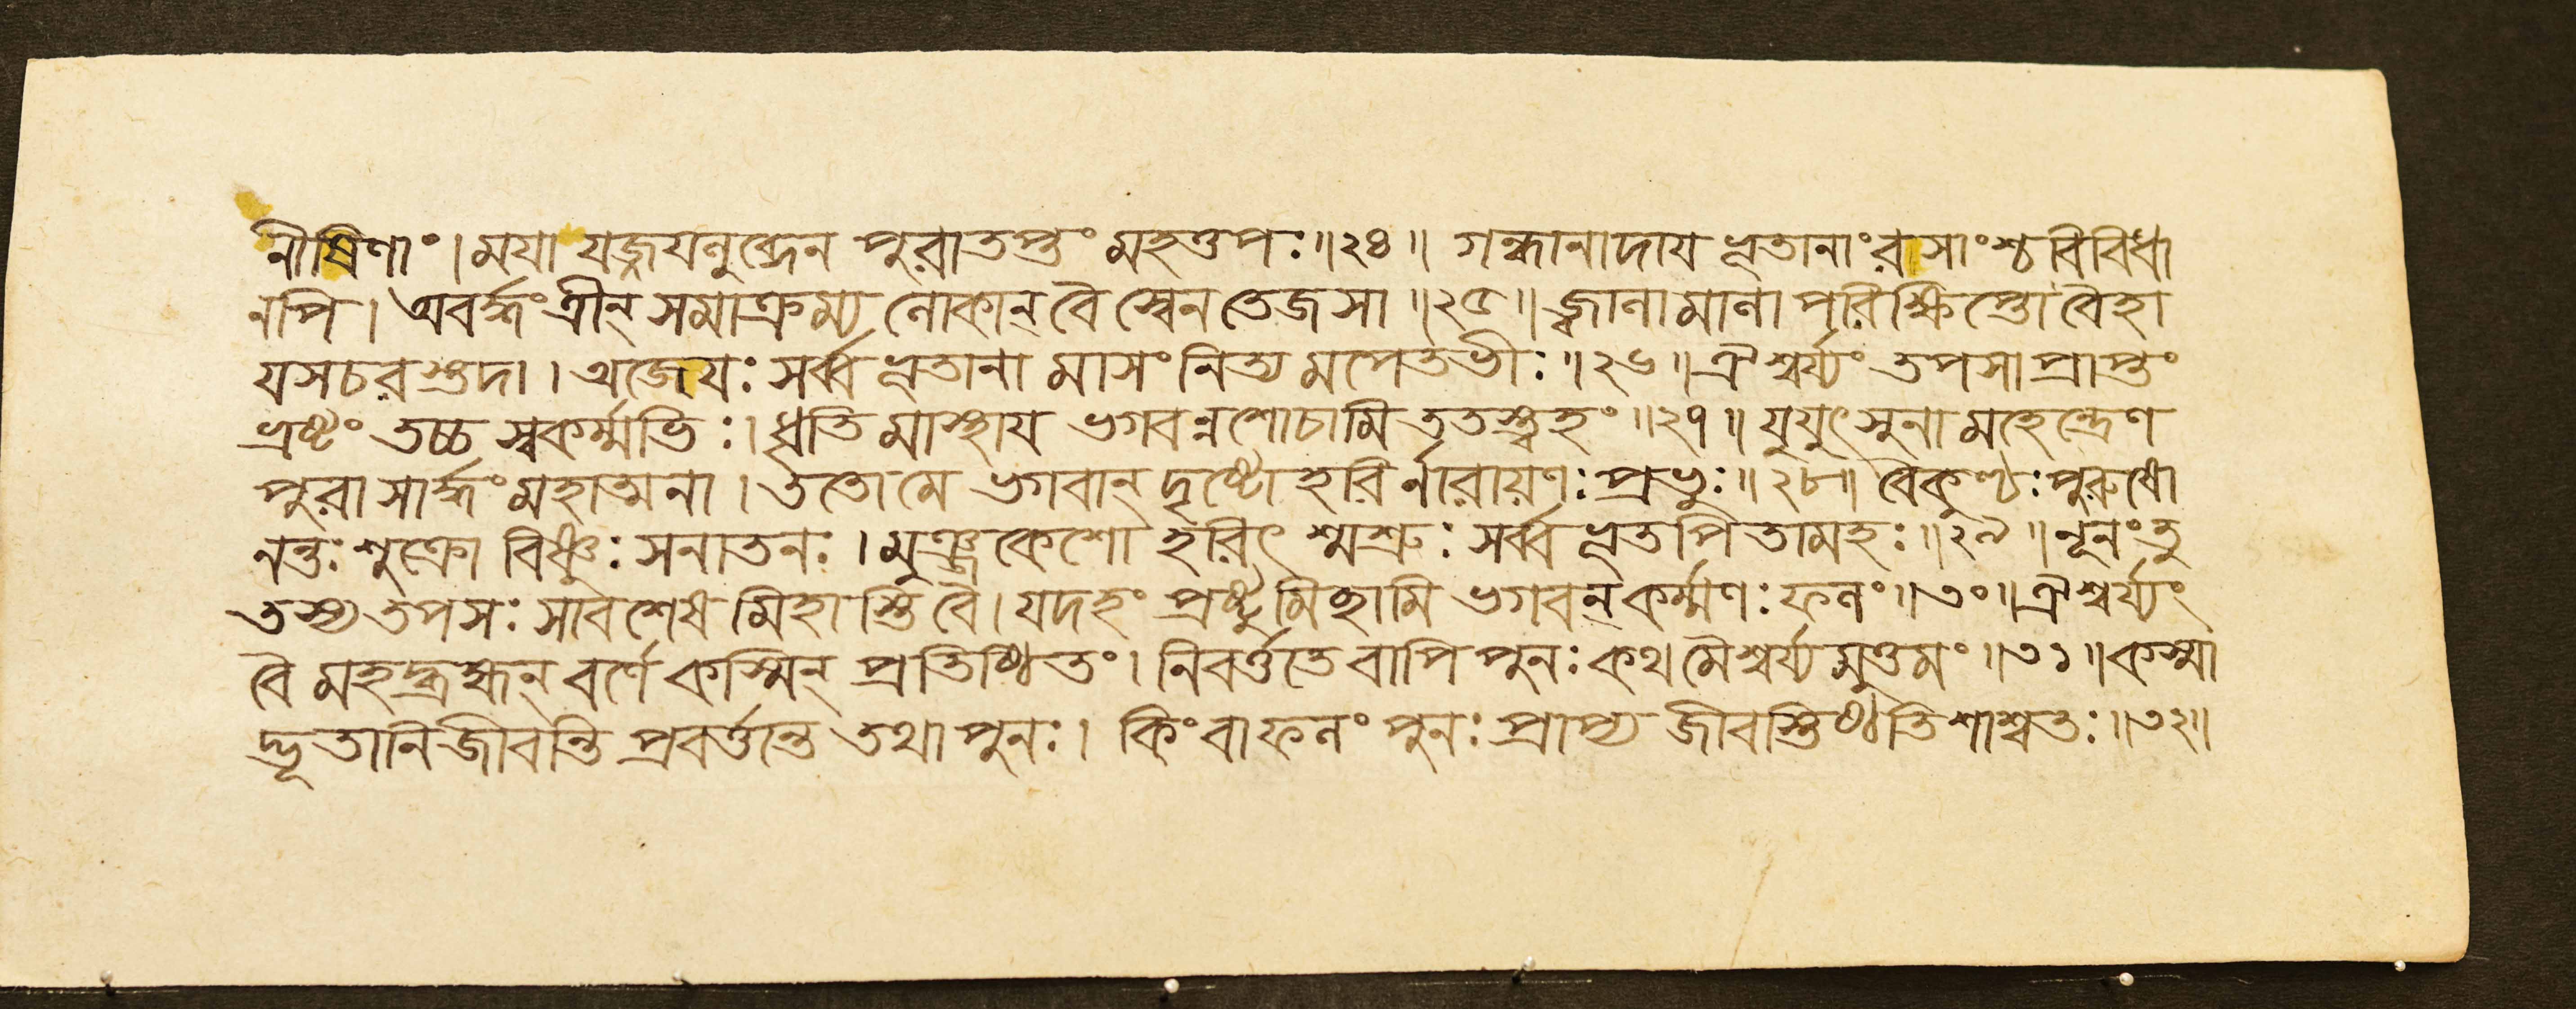 নীষিণাং।ময়া যজ্জয়লুব্ধেন পুরাতপ্তং মহত্তপঃ॥২৪॥ গন্ধানাদায় ভূতানাং রসাংশ্চ বিবিধা
নপি। অবর্দ্ধং ত্রীন্ সমাক্রম্য লোকান্ বৈ স্বেন তেজসা॥২৫॥ জ্বালামালা পরিক্ষিপ্তো বৈহা
য়সচরস্তদা। অজেয়ঃ সর্ব্বভূতানা মাসং নিত্য মপেতভীঃ॥২৬॥ ঐশ্বর্য্যং তপসা প্রাপ্তং
ভ্রষ্টং তচ্চ স্বকর্ম্মভিঃ। ধৃতি মাস্থায় ভগবন্নশোচামি ততস্ত্বহং॥২৭॥ যুযুৎসুনা মহেন্দ্রেণ
পুরা সার্দ্ধং মহাত্মনা। ততো মে ভগবান্ দৃষ্টো হরির্নারায়ণঃ প্রভুঃ॥২৮॥ বৈকুণ্ঠঃ পুরুষো
নন্তঃ শুক্লো বিষ্ণুঃ সনাতনঃ। মুঞ্জকেশো হরিৎ শ্মশ্রুঃ সর্ব্বভূতপিতামহঃ॥২৯॥ নূনং তু
তস্য তপসঃ সাবশেষ মিহাস্তি বৈ। যদহং প্রষ্টুমিচ্ছামি ভগবন্ কর্ম্মণঃ ফলং॥৩০॥ ঐশ্বর্য্যং
বৈ মহদ্ব্রহ্মন্ বর্ণে কস্মিন্ প্রতিষ্ঠিতং। নিবর্ত্ততে বাপি পুনঃ কথমৈশ্বর্য্য মুত্তমং॥৩১॥ কস্মা
দ্ভূতানি জীবন্তি প্রবর্ত্তন্তে তথা পুনঃ। কিং বা ফলং পুনঃ প্রাপ্য জীবস্তিষ্ঠতি শাশ্বতঃ॥৩২॥